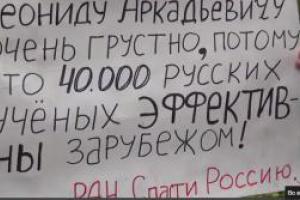 ЕОНИДУ АРКАДЬЕВИЧУ
ОЧЕНЬ ГРУСТНО, ПОТОМУ
ТО 40.000 РУССКИХ
УЧЁНЫХ ЭФФЕКТИВ-
НЫ ЗАРУБЕЖОМ!
РАН СПАСИ РОССИЮ.